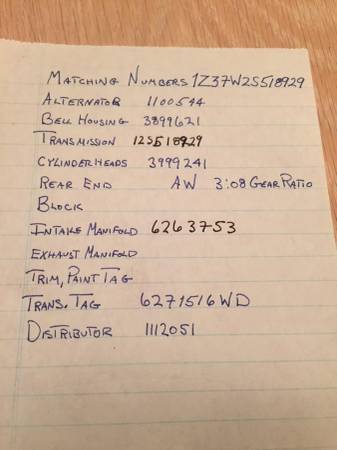 MATCHING NUMBERS 1Z37W2S518929
ALTERNATOR 1100544
BELL HOUSING 3899621
TRANSMISSION 12S518929
CYLINDER HEADS 3999241
REAR END AW 3:08 GEAR RATIO
BLOCK
INTAKE MANIFOLD 6263753
EXHAUST MANIFOLD
TRIM, PAINT TAG
TRANS. TAG 6271516WD
DISTRIBUTOR 1112051